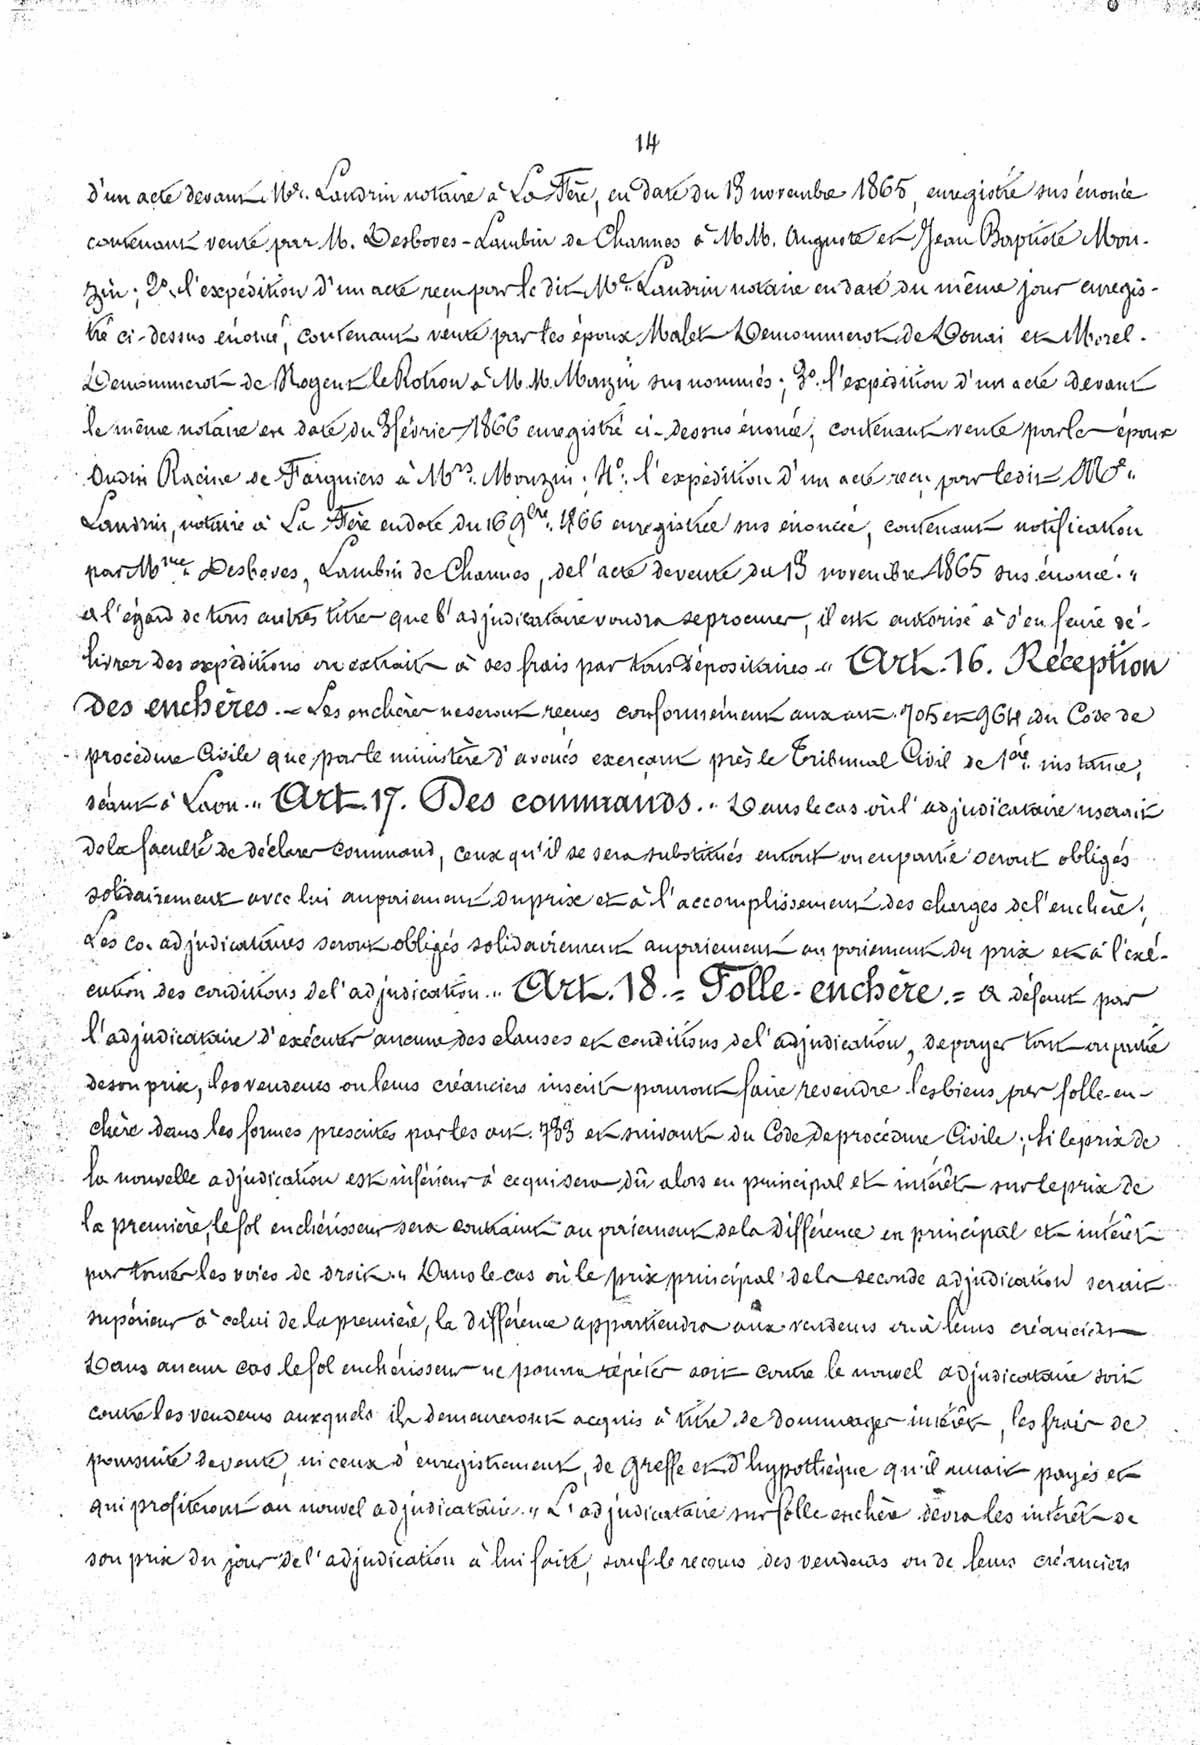 14
d'un acte devant Me. Landrin notaire à La Fère, en date du 13 novembre 1865, enregistré sus énoncé
contenant vente par M. Desboves-Lambin de Channes à M.M. Auguste et Jean Baptiste Mon-
zin; 2o. l'expédition d'un acte reçu par le dit Me. Landrin notaire en date du même jour enregis-
tré ci-dessus énoncé, contenant vente par les époux Malet Demommerot de Douai et Morel.
Demommerot de Nogent le Rotrou à M.M. Monzin sus nommés; 3o. l'expédition d'un acte devant
le même notaire en date du 3 février 1866 enregistré ci-dessus énoncé, contenant vente par les époux
Oudin Racine de Fargniers à Mrs. Monzin; 4o. l'expédition d'un acte reçu par ledit = Me "
Landrin, notaire à La Fère en date du 16 9bre. 1866 enregistrée sus énoncée, contenant notification
par Mme. Desboves, Lambin de Channes, de l'acte de vente du 13 novembre 1865 sus énoncé. "
A l'égard de tous autres titres que l'adjudicataire voudra se procurer, il est autorisé à s'en faire dé-
livrer des expéditions ou extraits à ses frais par tous dépositaires " Art. 16. Réception
Des enchères. = Les enchères ne seront reçues conformément aux art. 705 et 964 du Code de
procédure Civile que par le ministère d'avoués exerçant près le Tribunal Civil de 1ère. instance,
séant à Laon. " Art. 17. Des commands. " Dans le cas où l'adjudicataire userait
de la faculté de déclarer command, ceux qu'il se sera substitués en tout ou en partie seront obligés
solidairement avec lui au paiement du prix et à l'accomplissement des charges de l'enchère;
Les co-adjudicataires seront obligés solidairement au paiement au paiement du prix et à l'exé-
cution des conditions de l'adjudication. " Art. 18. = Folle-enchère. = A défaut par
l'adjudicataire d'exécuter aucune des clauses et conditions de l'adjudication, de payer tout ou partie
de son prix, les vendeurs ou leurs créanciers inscrits pourront faire revendre les biens par folle-en-
chère dans les formes prescrites par les art. 733 et suivant du Code de procédure Civile; Si le prix de
la nouvelle adjudication est inférieur à ce qui sera dû alors en principal et intérêts sur le prix de
la première, le fol enchérisseur sera contraint au paiement de la différence en principal et intérêts
par toutes les voies de droit. " Dans le cas où le prix principal de la seconde adjudication serait
supérieur à celui de la première, la différence appartiendra aux vendeurs ou à leurs créanciers
Dans aucun cas le fol enchérisseur ne pourra répéter soit contre le nouvel adjudicataire soit
contre les vendeurs auxquels ils demeureront acquis à titre de dommages intérêts, les frais de
poursuite de vente, ni ceux d'enregistrement, de greffe et d'hypothèque qu'il aurait payés et
qui profiteront au nouvel adjudicataire. " L'adjudicataire sur folle enchère devra les intérêts de
son prix du jour de l'adjudication à lui faite, sauf le recours des vendeurs ou de leurs créanciers